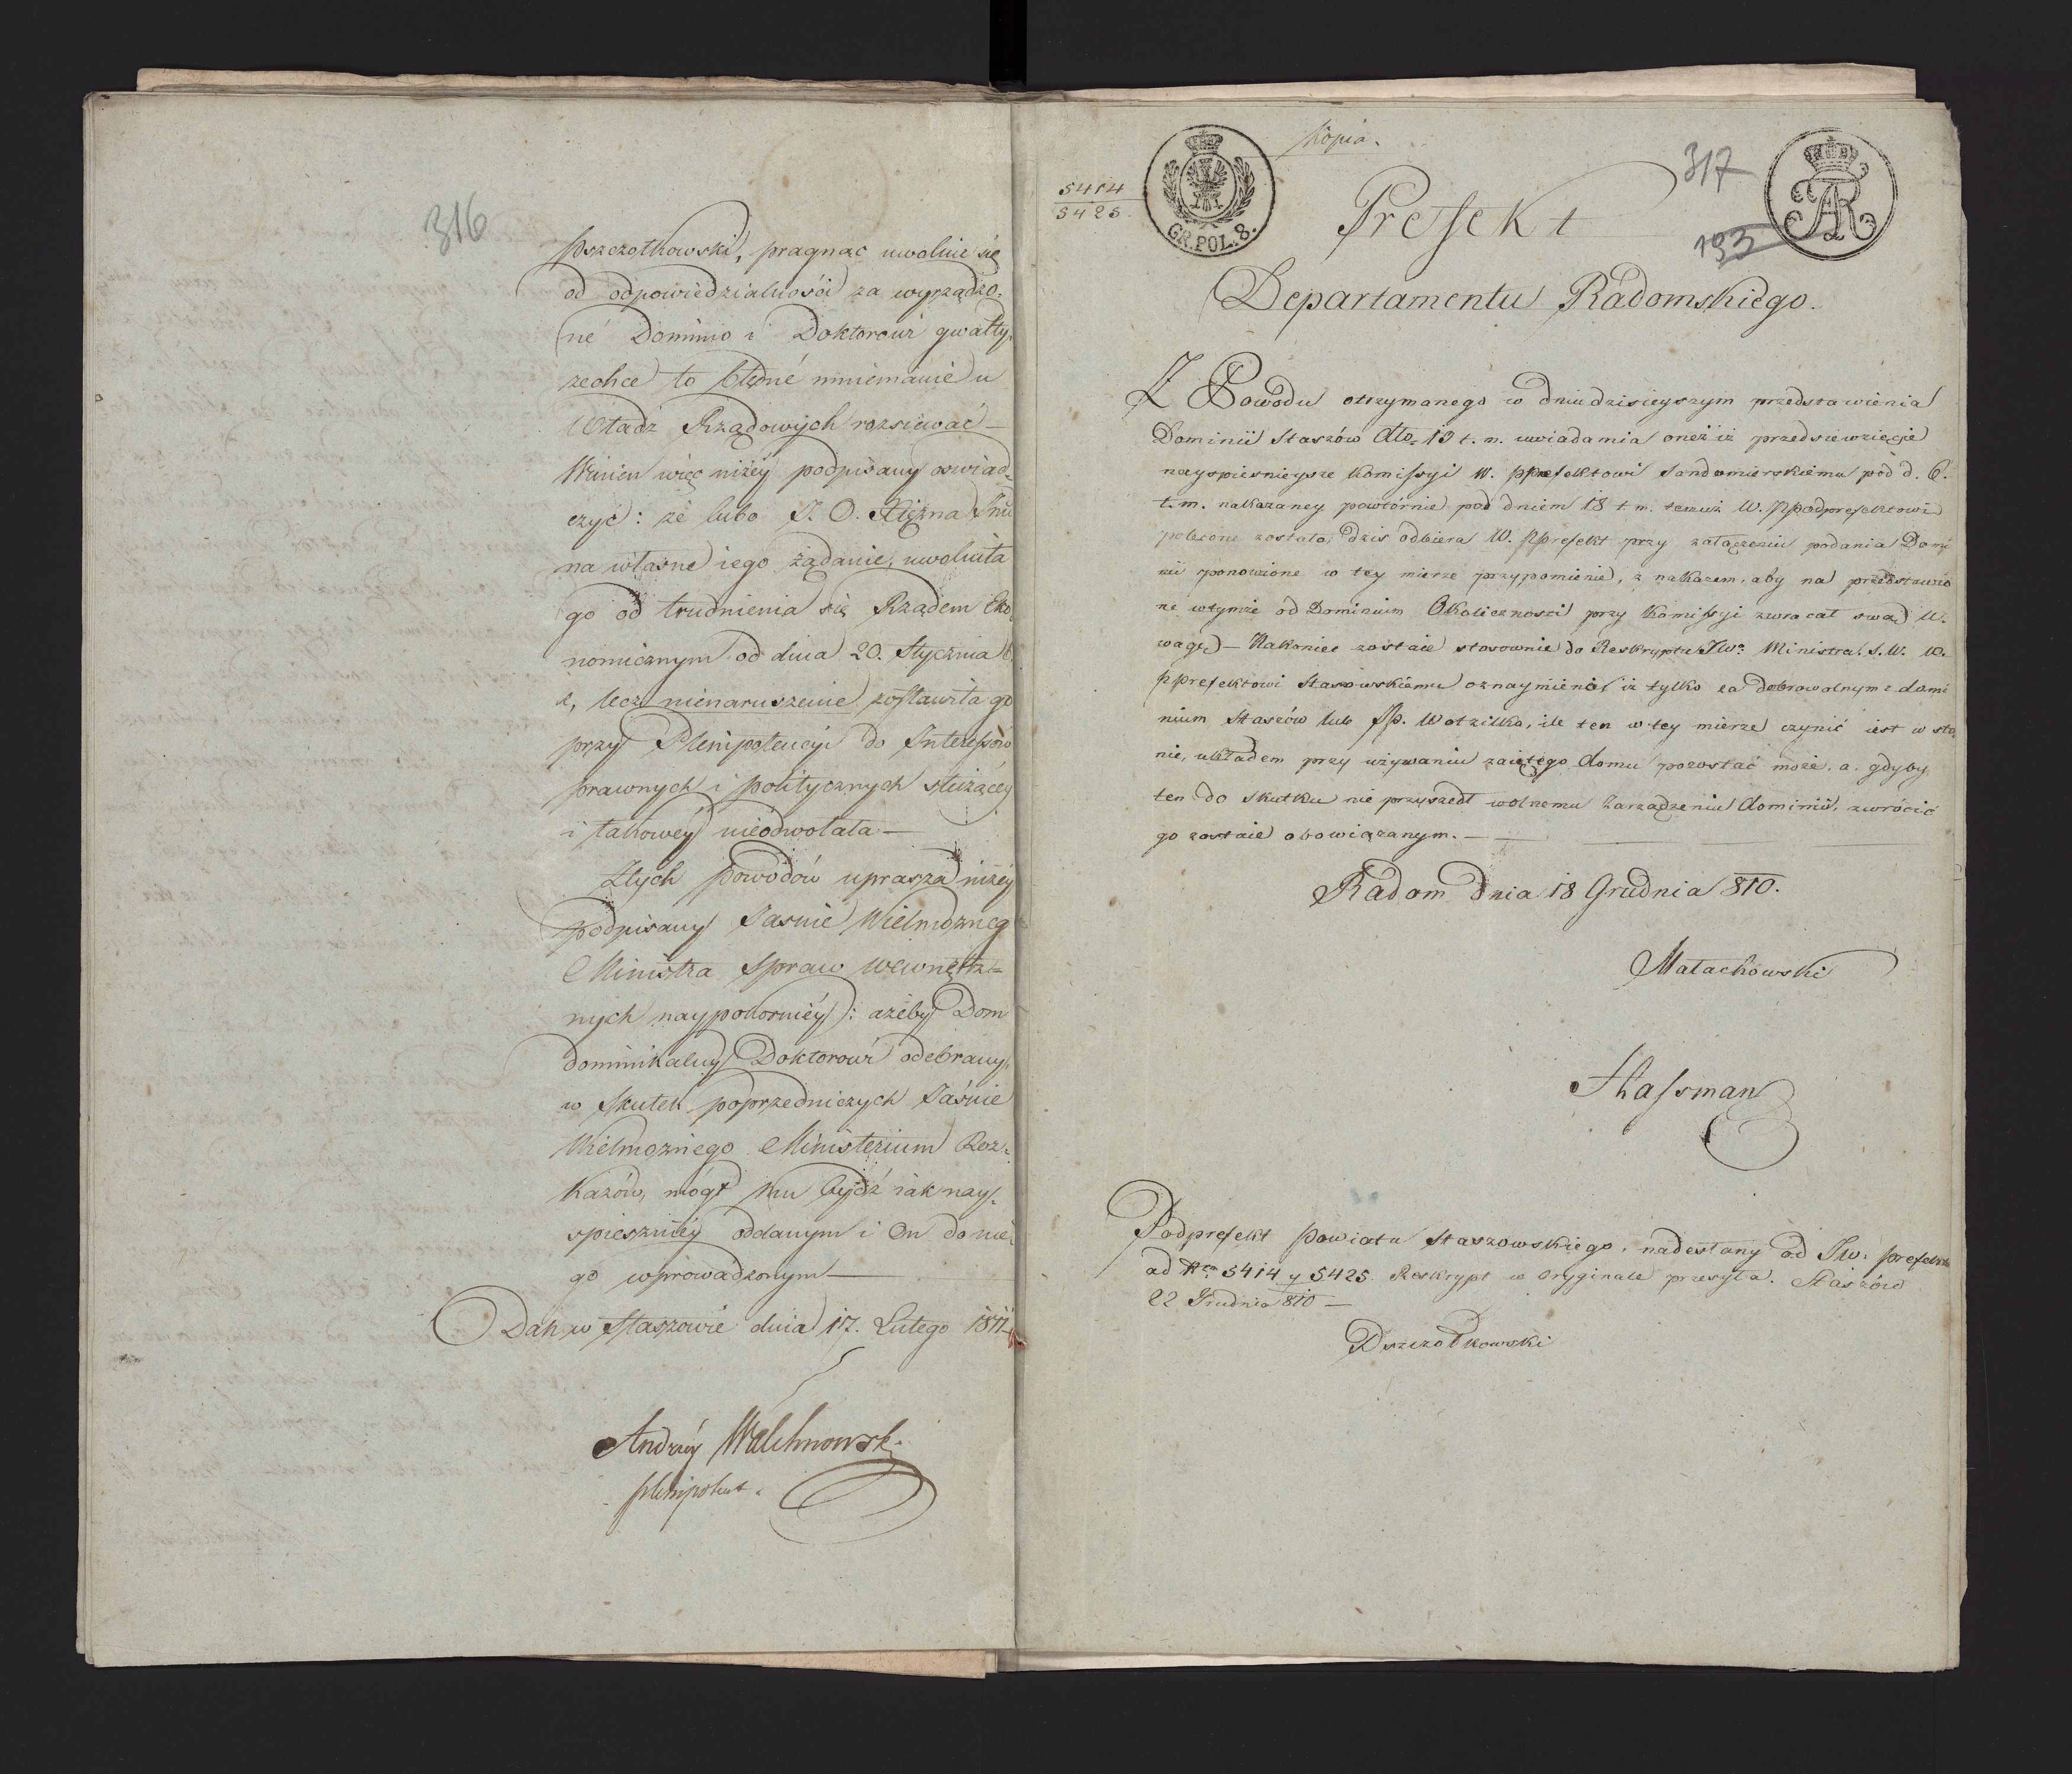 316
Pszczołkowski, pragnąc uwolnić się
od odpowiedzialności za wyrządzo-
né Dominio i Doktorowi gwałty,
zechce to błędné mniémanié u
Władz Rządowych rozsiewać —
Winien więc niżéy podpisany oswiad-
czyć: że lubo J. O. Xiężna Jmć
na własne iego żądanie, uwolniła
go od trudnienia się Rządem Eko-
nomicznym od dnia 20. Stycznia b.
r, lecz nienaruszenie zostawiła go
przy Plenipotencyi do Interessów
prawnych i politycznych służącéy
i takowéy nieodwołała —
Z tych powodów uprasza niżéy
podpisany Jasnie Wielmożneg
Ministra Spraw Wewnętrz-
nych naypokorniéy: ażeby Dom
dominikalny Doktorowi odebrany,
w skutek poprzedniczych Jaśnie
Wielmożnego Ministerium Roz-
kazów, mógł mu bydź iak nay-
spieszniéy oddanym i On do nie-
go wprowadzonym —
Dan w Staszowie dnia 17. Lutego 1811
Andrzéy Walchnowski
plenipotent.
Kopia.
317
193
5414
5425.
GR.POL.8.
AR
Prefekt
Departamentu Radomskiego.
Z Powodu otrzymanego w dniu dzisieyszym przedstawienia
Dominii Staszów dto 13 t. m. uwiadamia oneż iż przedsiewzięcie
nayspiesnieysze Komissyi W. pprefektowi Sandomierskiemu pod d. 6.
t. m. nakazaney powtórnie pod dniem 18 t. m. temuż W. Ppodprefektowi
polecone zostało, dzis odbiera W. Pprefekt przy załączeniu podania Domi
nii ponowione w tey mierze przypomienie, z nakazem, aby na przedstawio
ne w tymże od Dominium Okoliczności przy Komissyi zwracał swą U-
wagę — Nakoniec zostaie stosownie do Reskryptu JWo Ministra S. W. W.
pprefektowi Staszowskiemu oznaymieno iż tylko za dobrowolnym z domi
nium Staszów lub JP. Wotzilka, ile ten w tey mierze czynić iest w sta
nie, układem przy używaniu zaiętego domu pozostać może, a gdyby
ten do skutku nie przyszedł wolnemu Zarządzeniu dominii, zwrócić
go zostaie obowiązanym. —
Radom dnia 18 Grudnia 810.
Małachowski
Hassman
Podprefekt Powiatu Staszowskiego, nadesłany od JW. prefekta
ad Nra 5414 y 5425 Reskrypt w oryginale przesyła. Staszów
22 Grudnia 810 —
Pszczołkowski